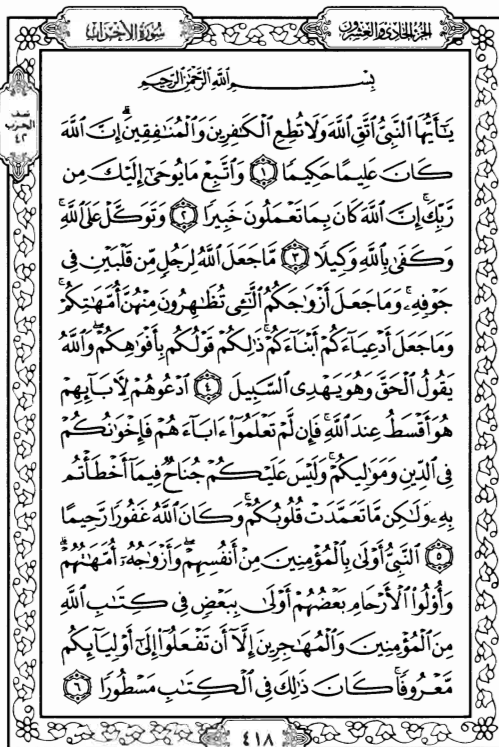 سُورَةُ الأَحْزَابِ
الجُزْءُ الحَادِي وَالعِشْرُونَ
نصف
الحزب
٤٢
بِسْمِ ٱللَّهِ ٱلرَّحْمَٰنِ ٱلرَّحِيمِ
يَٰٓأَيُّهَا ٱلنَّبِىُّ ٱتَّقِ ٱللَّهَ وَلَا تُطِعِ ٱلْكَٰفِرِينَ وَٱلْمُنَٰفِقِينَۗ إِنَّ ٱللَّهَ
كَانَ عَلِيمًا حَكِيمًا ١ وَٱتَّبِعْ مَا يُوحَىٰٓ إِلَيْكَ مِن
رَّبِّكَۚ إِنَّ ٱللَّهَ كَانَ بِمَا تَعْمَلُونَ خَبِيرًا ٢ وَتَوَكَّلْ عَلَى ٱللَّهِۚ
وَكَفَىٰ بِٱللَّهِ وَكِيلًا ٣ مَّا جَعَلَ ٱللَّهُ لِرَجُلٍ مِّن قَلْبَيْنِ فِى
جَوْفِهِۦۚ وَمَا جَعَلَ أَزْوَٰجَكُمُ ٱلَّٰٓـِٔى تُظَٰهِرُونَ مِنْهُنَّ أُمَّهَٰتِكُمْۚ
وَمَا جَعَلَ أَدْعِيَآءَكُمْ أَبْنَآءَكُمْۚ ذَٰلِكُمْ قَوْلُكُم بِأَفْوَٰهِكُمْۖ وَٱللَّهُ
يَقُولُ ٱلْحَقَّ وَهُوَ يَهْدِى ٱلسَّبِيلَ ٤ ٱدْعُوهُمْ لِءَابَآئِهِمْ
هُوَ أَقْسَطُ عِندَ ٱللَّهِۚ فَإِن لَّمْ تَعْلَمُوٓا۟ ءَابَآءَهُمْ فَإِخْوَٰنُكُمْ
فِى ٱلدِّينِ وَمَوَٰلِيكُمْۚ وَلَيْسَ عَلَيْكُمْ جُنَاحٌ فِيمَآ أَخْطَأْتُم
بِهِۦ وَلَٰكِن مَّا تَعَمَّدَتْ قُلُوبُكُمْۚ وَكَانَ ٱللَّهُ غَفُورًا رَّحِيمًا
٥ ٱلنَّبِىُّ أَوْلَىٰ بِٱلْمُؤْمِنِينَ مِنْ أَنفُسِهِمْۖ وَأَزْوَٰجُهُۥٓ أُمَّهَٰتُهُمْۗ
وَأُو۟لُوا۟ ٱلْأَرْحَامِ بَعْضُهُمْ أَوْلَىٰ بِبَعْضٍ فِى كِتَٰبِ ٱللَّهِ
مِنَ ٱلْمُؤْمِنِينَ وَٱلْمُهَٰجِرِينَ إِلَّآ أَن تَفْعَلُوٓا۟ إِلَىٰٓ أَوْلِيَآئِكُم
مَّعْرُوفًاۚ كَانَ ذَٰلِكَ فِى ٱلْكِتَٰبِ مَسْطُورًا ٦
٤١٨